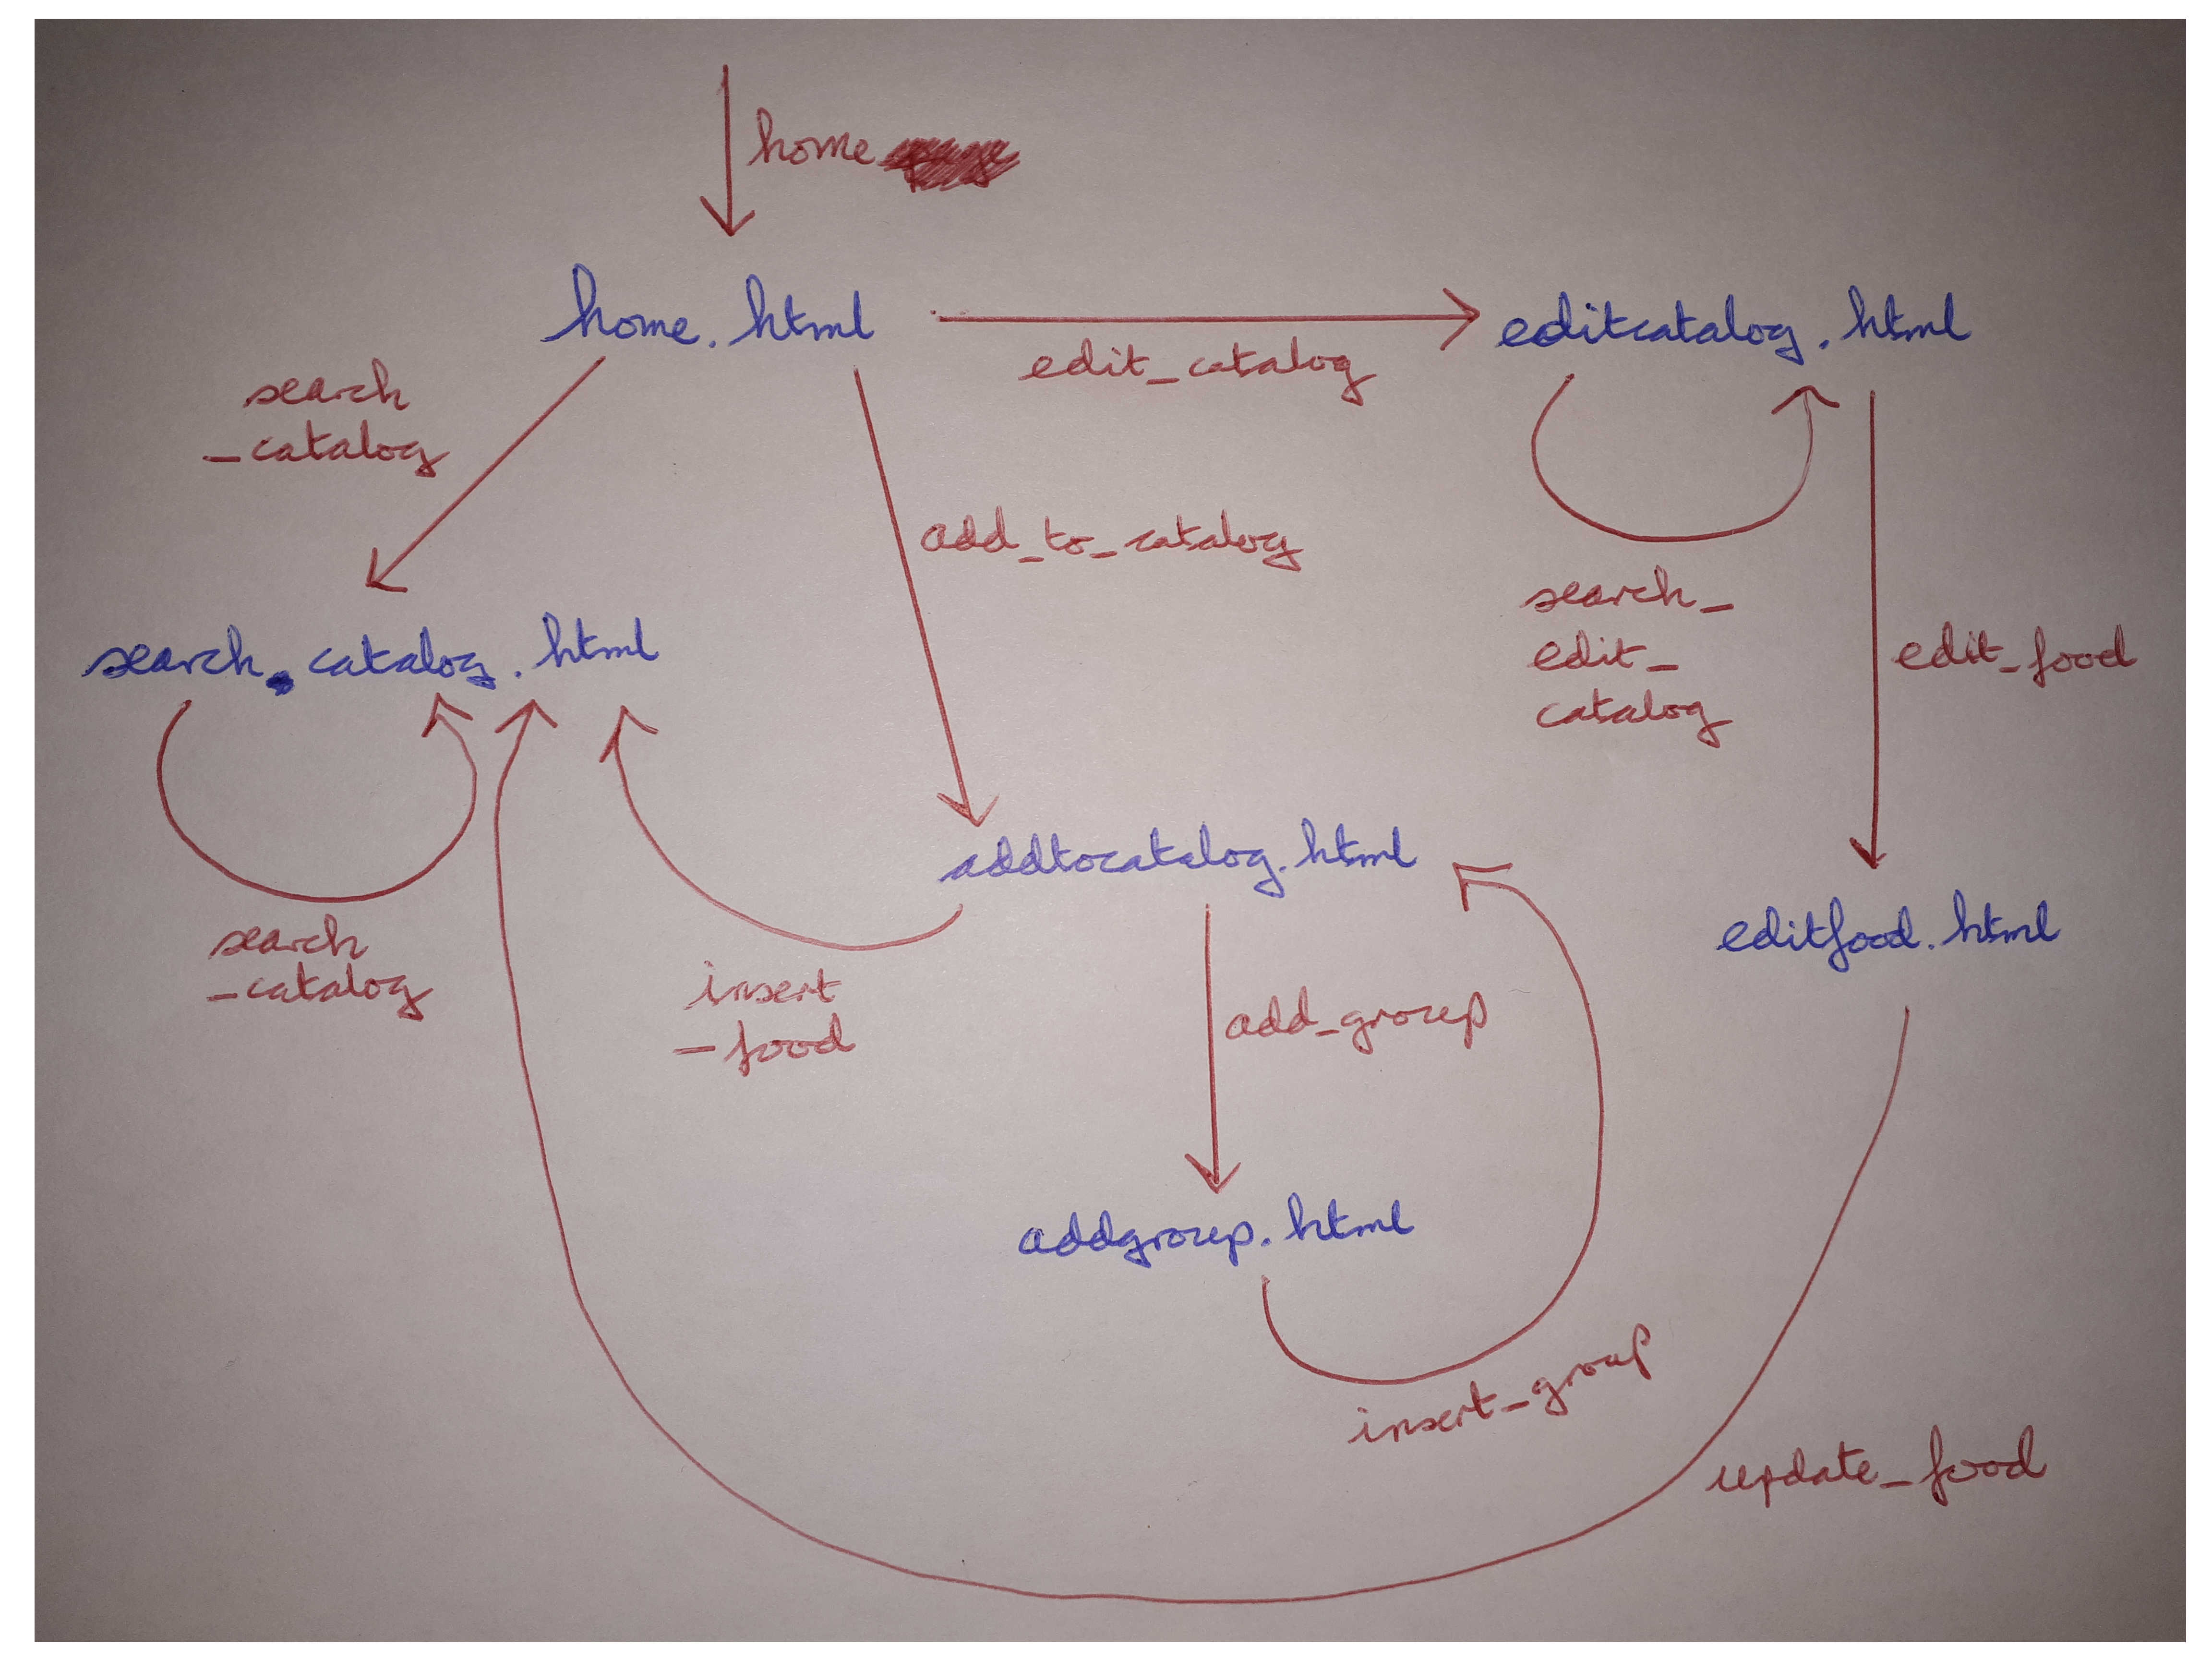 home
home.html
edit_catalog
editcatalog.html
search
_catalog
add_to_catalog
search_
edit_
catalog
edit_food
search.catalog.html
addtocatalog.html
search
_catalog
insert
_food
add_group
editfood.html
addgroup.html
insert_group
update_food